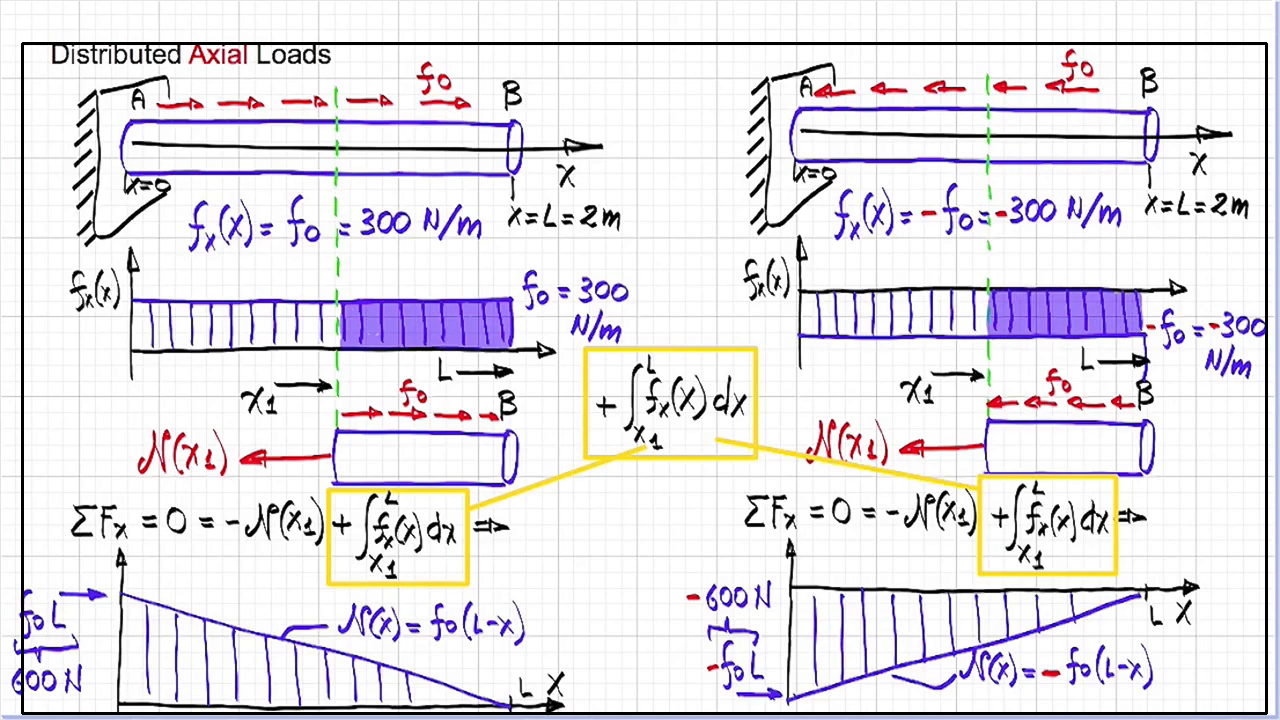 Distributed Axial Loads
A f0 B
x=0
X
fx(x) = f0 = 300 N/m
x=L=2m
fx(x)
f0 = 300
N/m
L
x1
f0 B
N(x1)
ΣFx = 0 = -N(x1) + ∫x1^L fx(x) dx ⇒
f0L
600N
N(x) = f0(L-x)
L X
+ ∫x1^L fx(x) dx
A f0 B
x=0
X
fx(x) = -f0 = -300 N/m
x=L=2m
fx(x)
-f0 = -300
N/m
L
x1
f0 B
N(x1)
ΣFx = 0 = -N(x1) + ∫x1^L fx(x) dx ⇒
-600N
-f0L
L X
N(x) = -f0(L-x)